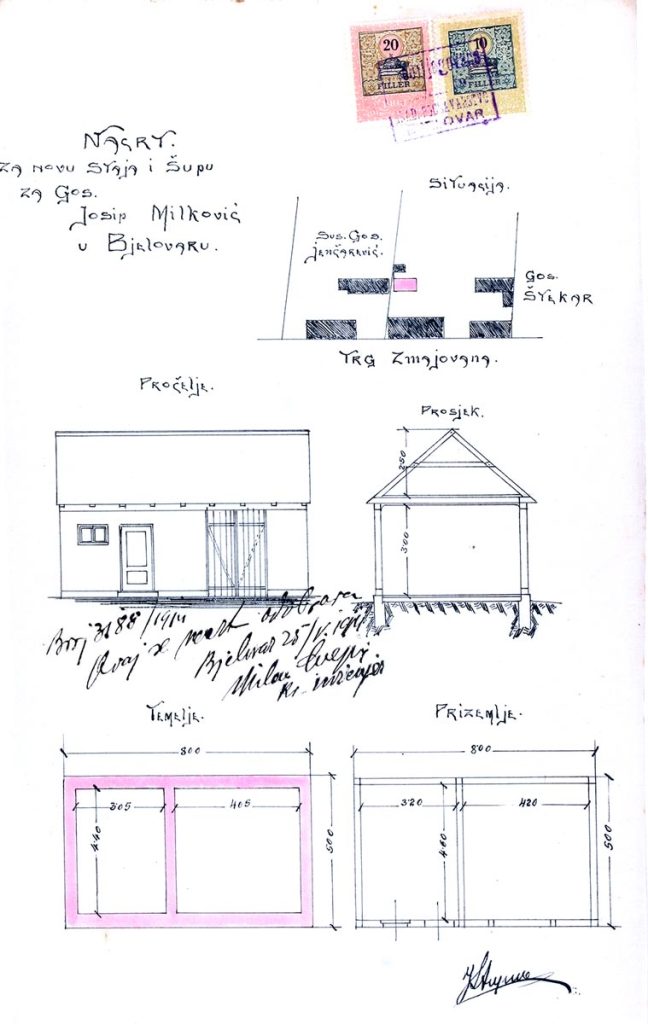 20
FILLER
10
FILLER
OVAR
Nacrt.
za novu Staja i Šupu
za Gos.
Josip Milković
u Bjelovaru.
Situacija.
Sus. Gos.
Jenčarević.
Gos.
Štekar
Trg Zmajovana.
Pročelje.
Prosjek.
250
300
Broj 3188/1914
Ovaj se nacrt odobrava
Bjelovar 25/V. 1914
Milan
kr. inženjer
Temelje.
Prizemlje.
800
800
305
405
440
500
320
420
460
500